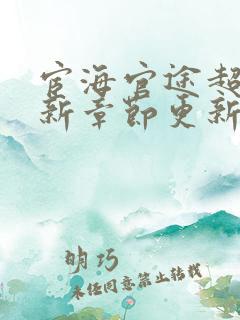 宦海官途超
新章節更新
明巧
未经同意禁止转载